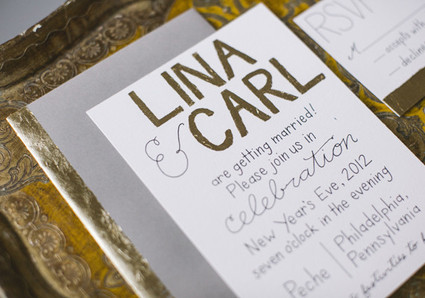 LINA
& CARL
are getting married!
Please join us in
celebration
New Year's Eve, 2012
seven o'clock in the evening
Peche | Philadelphia,
Pennsylvania
festivities to
RSVP
M
accepts
declines